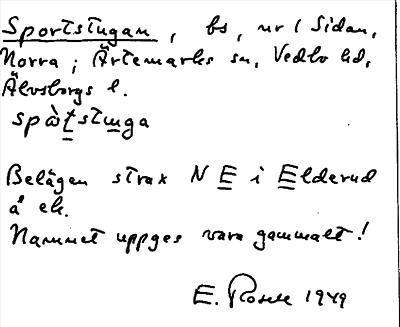 Sportstugan, bs, nr 1 Sidan,
Norra; Ärtemarks sn, Vedbo hd,
Älvsborgs l.
spòṯstuṉga
Belägen strax N E i Elderud
å ek.
Namnet uppges vara gammalt!
E. Rosell 1949